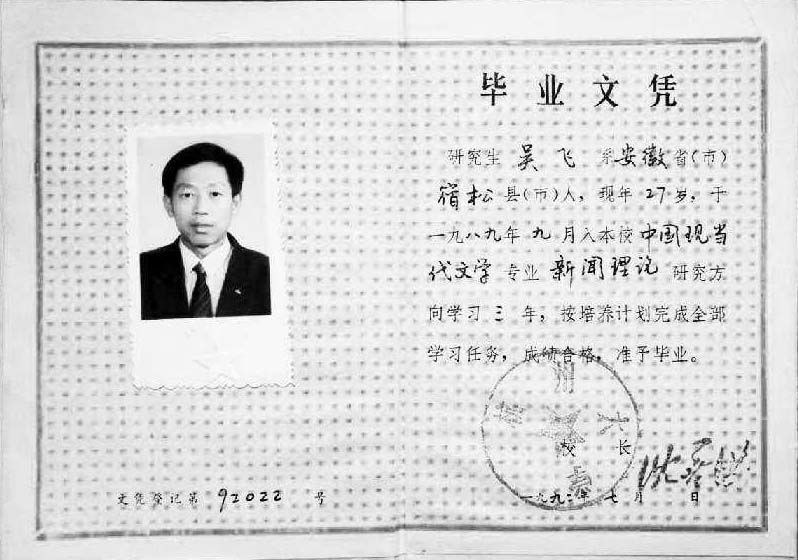 毕业文凭
研究生 吴飞 系安徽省(市)
宿松县(市)人，现年27岁，于
一九八九年九月入本校中国现当
代文学专业新闻理论研究方
向学习三年，按培养计划完成全部
学习任务，成绩合格，准予毕业。
杭州大学
校长 沈善洪
文凭登记第92022号
一九九二年七月 日